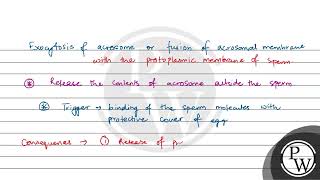 Exocytosis of acrosome or fusion of acrosomal membrane
with the protoplasmic membrane of sperm
Release the contents of acrosome outside the sperm
Trigger → binding of the sperm molecules with
protective cover of egg
Consequences → ① Release of p
P
W
PW